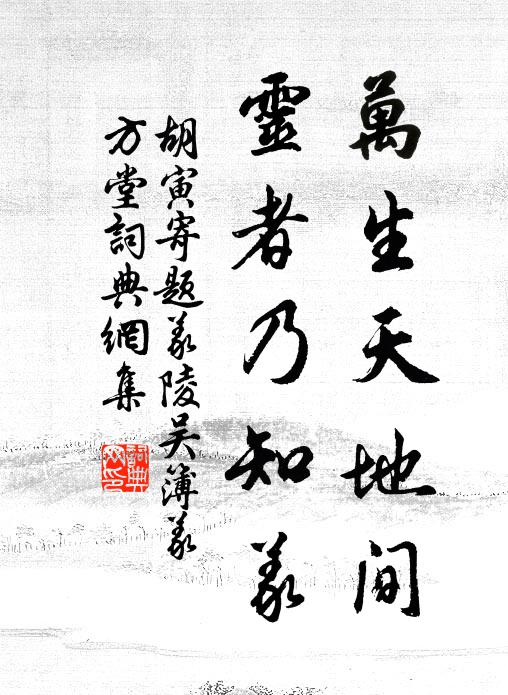 萬生天地間
靈者乃知義
胡寅寄題義陵吳簿義
方堂詞典網集
詞典
网印